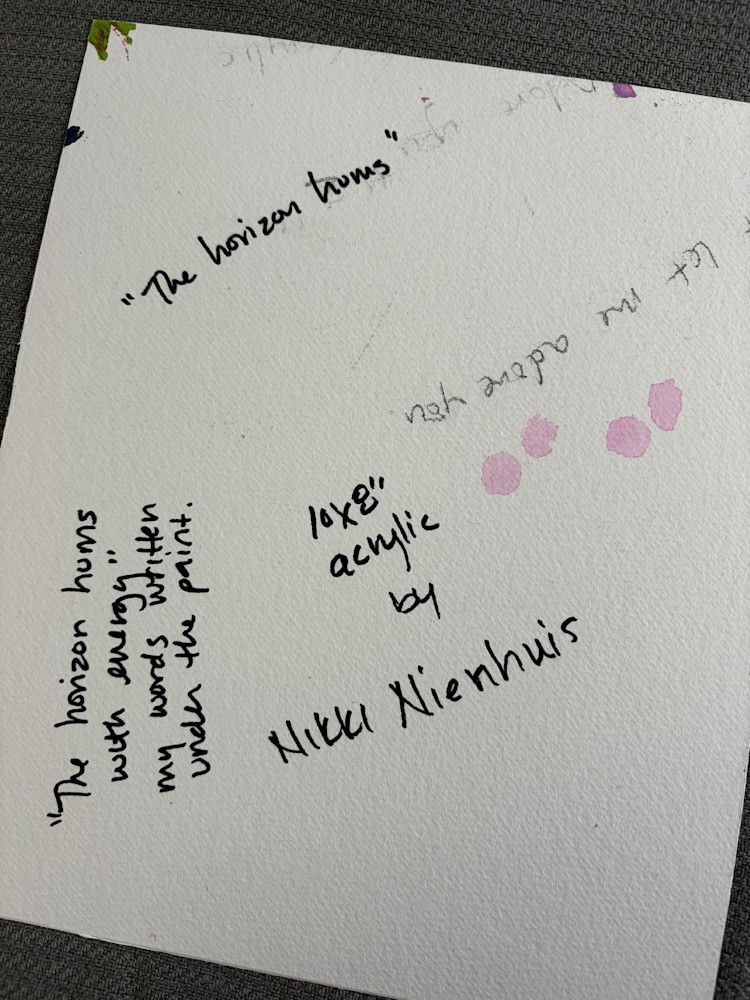 "The horizon hums"
let me adore you.
10x8"
acrylic
by
Nikki Nienhuis
"The horizon hums
with energy"
my words written
under the paint.